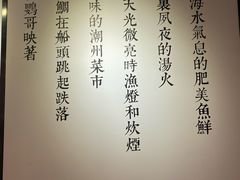 海水氣息的肥美魚鮮
裏夙夜的湯火
大光微亮時漁燈和炊煙
味的潮州菜市
鯽在船頭跳起跌落
鸚哥映著